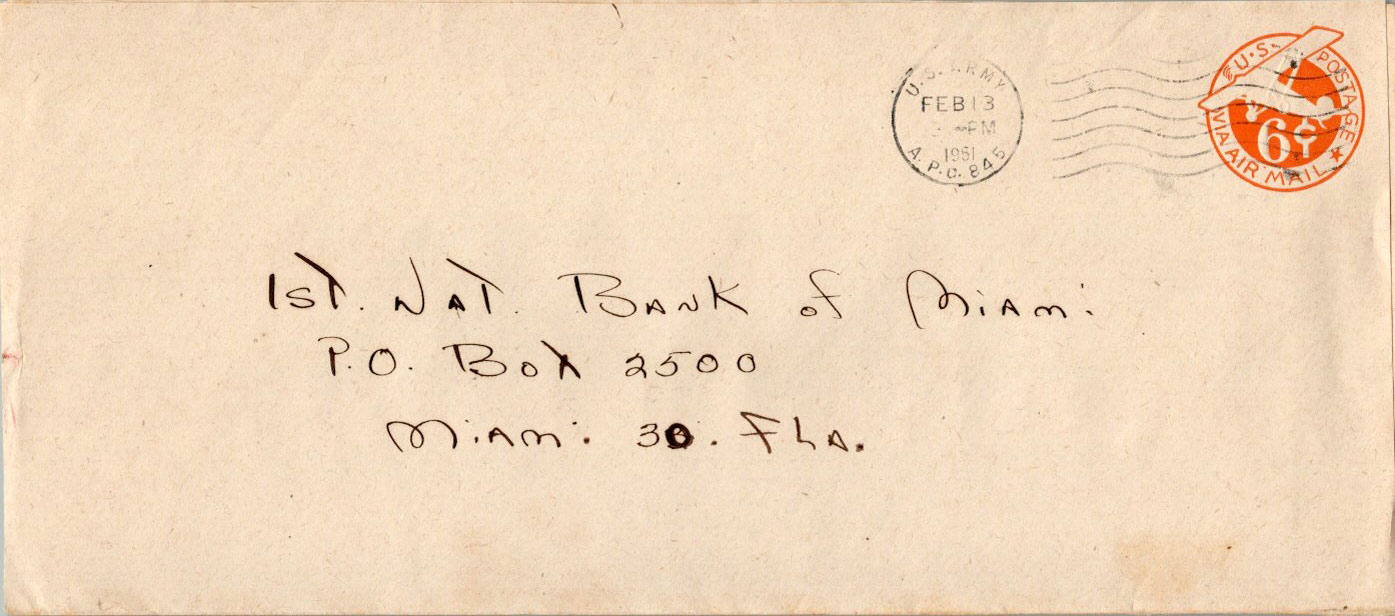 U.S. ARMY
FEB 13
PM
1951
A.P.O. 845
U.S. POSTAGE
6¢
VIA AIR MAIL
1ST. NAT. BANK of Miami.
P.O. Box 2500
Miami. 30. FLA.